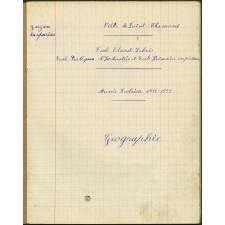 Ville de Saint-Chamond
École Claude Lebois
École Pratique d'Industrie et École Primaire supérieure
Année Scolaire 1932-1933
Géographie